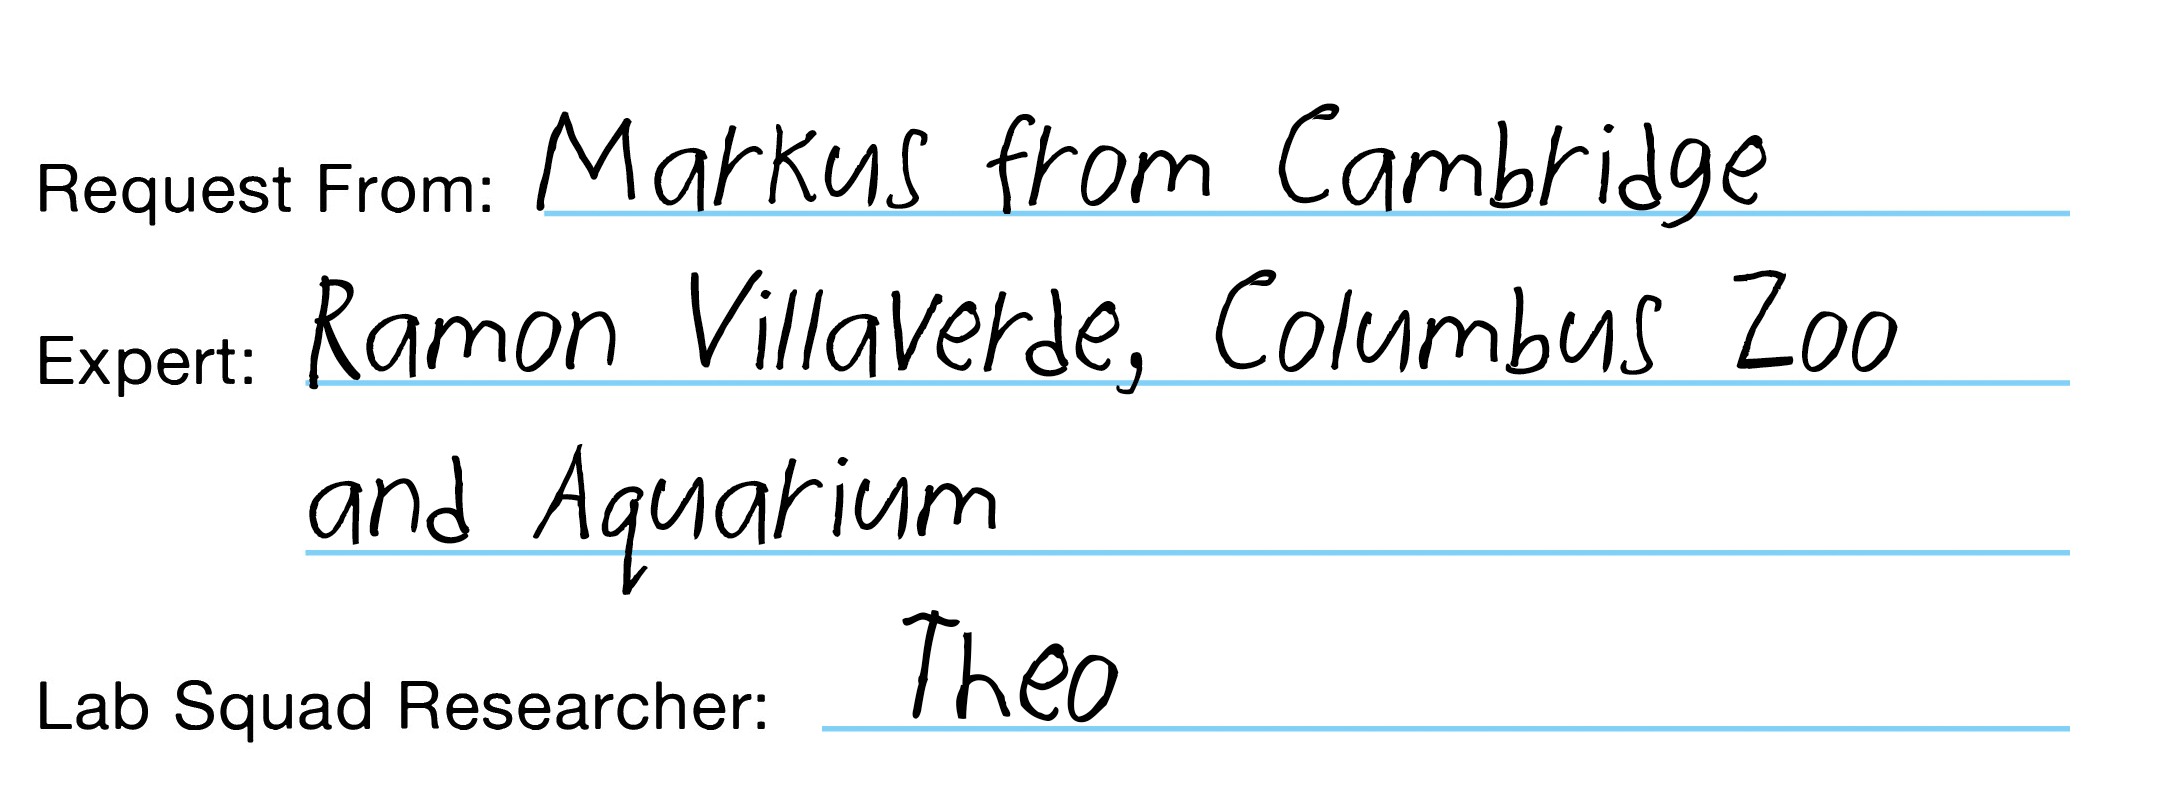 Request From: Markus from Cambridge
Expert: Ramon Villaverde, Columbus Zoo
and Aquarium
Lab Squad Researcher: Theo